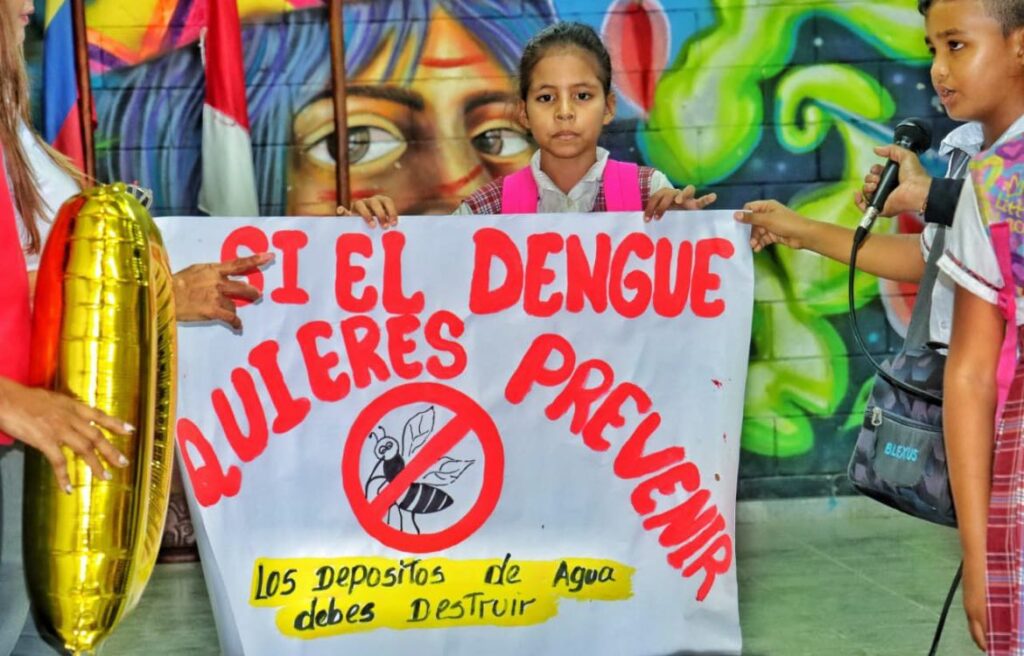 SI EL DENGUE
QUIERES PREVENIR
Los Depositos de Agua
debes Destruir
BLEXUS